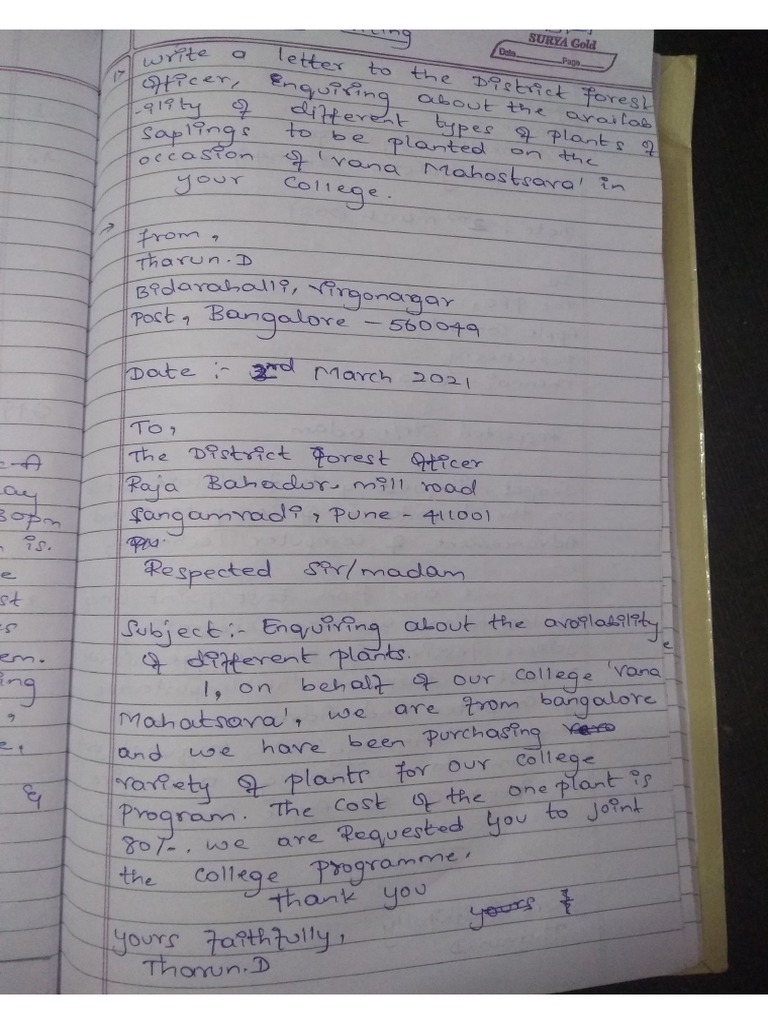 SURYA Gold
Date Page
1) Write a letter to the District forest
Officer, Enquiring about the availab
-ility of different types of plants of
saplings to be planted on the
occasion of 'vana Mahostsava' in
your college.
from,
Tharun.D
Bidarahalli, virgonagar
Post, Bangalore - 560049
Date :- 3rd March 2021
To,
The District Forest Officer
Raja Bahadur mill road
Sangamvadi, Pune - 411001
Respected Sir/madam
Subject:- Enquiring about the availability
of different plants.
I, on behalf of our college 'vana
Mahatsava', we are from bangalore
and we have been purchasing
variety of plants for our college
program. The cost of the one plant is
80/-. we are Requested you to joint
the college programme.
Thank you
yours
yours faithfully,
Tharun.D
ay
3opm
is.
e
st
cs
em.
ing
,
e.